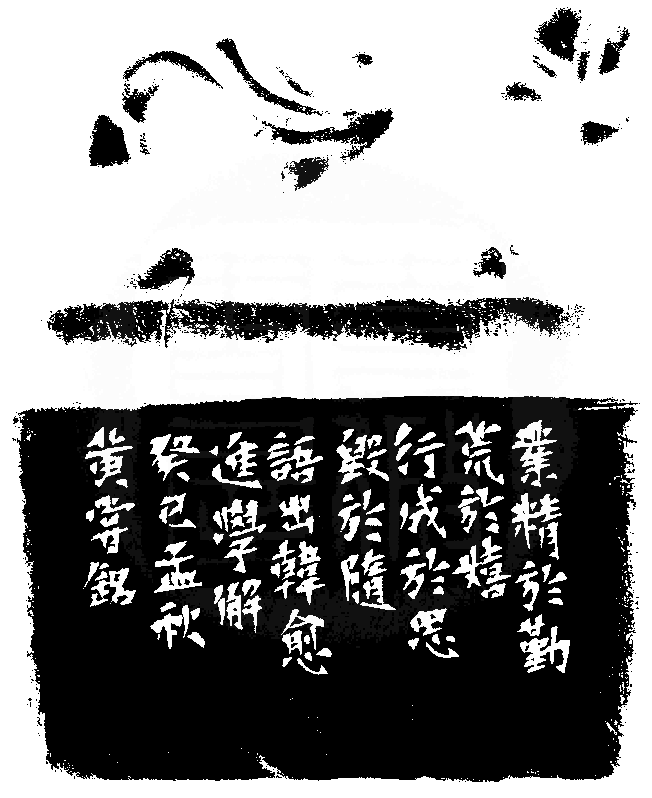 業精於勤
荒於嬉
行成於思
毀於隨
語出韓愈
進學解
癸巳孟秋
黃銘